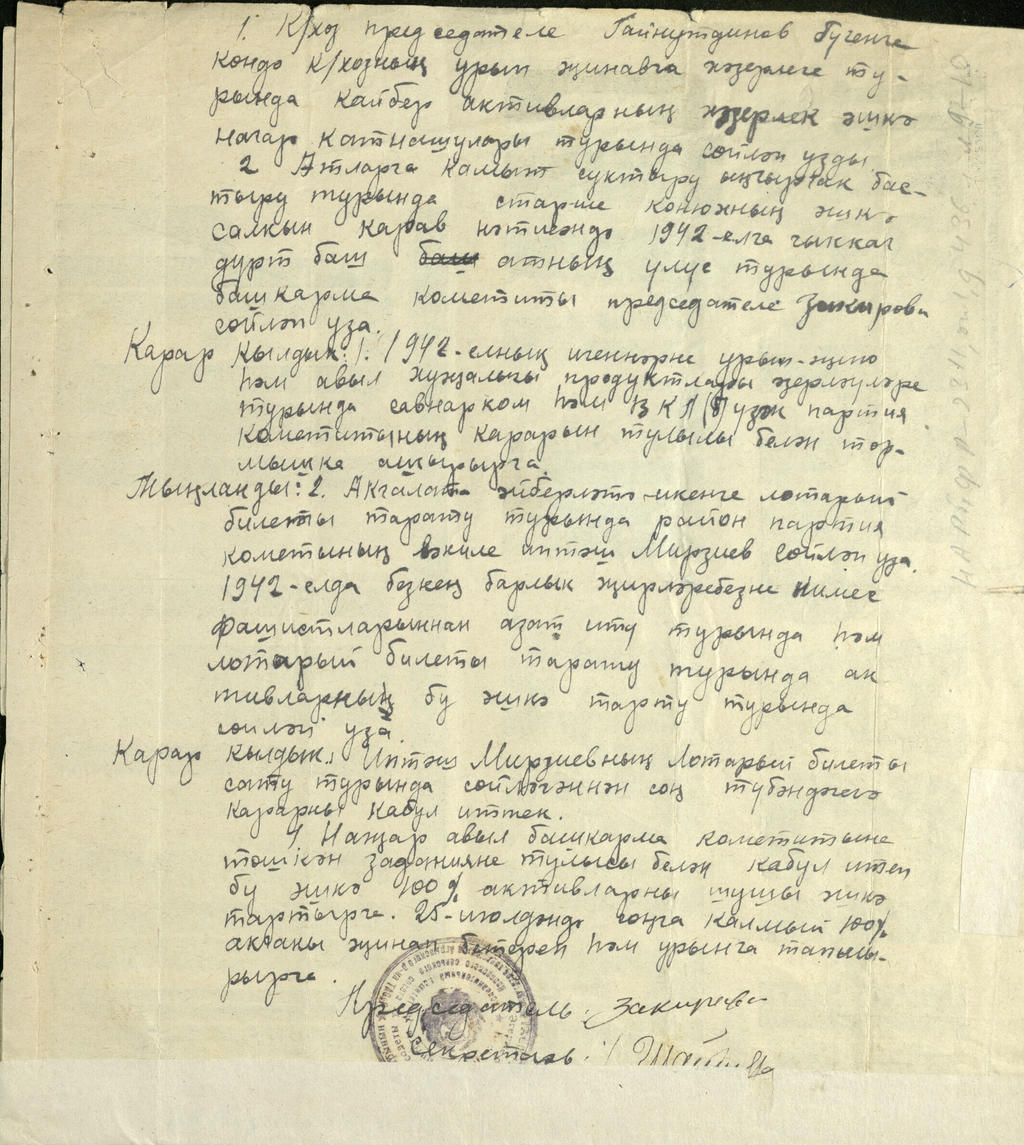 1. К/хоз председателе Гайнутдинов бүгенге
көндә к/хозның урып җинавга хәзерлеге ту-
рында кайбер активларның хәзерлек эшкә
начар катнашулары турында сөйләп узды
2 Атларга камыт суктыру ыңгырчак бас-
тыру турында старше конюхның эшкә
салкын карав нәтиҗәндә 1942-елга чыккач
дүрт баш атның үлүе турында
башкарма кометиты председателе Закирова
сөйләп уза.
Карар кылдык: 1. 1942-елның игеннәрне урып-җию
һәм авыл хуҗалыгы продуктлары әзерләүләре
турында савнарком һәм ВКП(б) үзәк партия
кометитының карарын тулылы белән тор-
мышка ашырырга.
Тыңланды: 2. Акчалата әйберләтә икенче лотарый
билеты тарату турында район партия
кометының вәкиле иптәш Мирзиев сөйләп уза.
1942-елда безнең барлык җирләребезне нимес
фашистларыннан азат итү турында һәм
лотарый билеты тарату турында ак
тивларның бу эшкә тарту турында
сөйләп уза.
Карар кылдык: Иптәш Мирзиевның Лотарый билеты
сату турында сөйләгәннән соң түбәндәгечә
карарны кабул иттек.
1 Наҗар авыл башкарма кометитыне
төшкән заданияне тулысы белән кабул итеп
бу эшкә 100% активларны шушы эшкә
тартырга. 25-июлдәндә соңга калмый 100%
акчакы җинап бетереп һәм урынга тапшы-
рырга.
Председатель: Закирова
Секретарь: